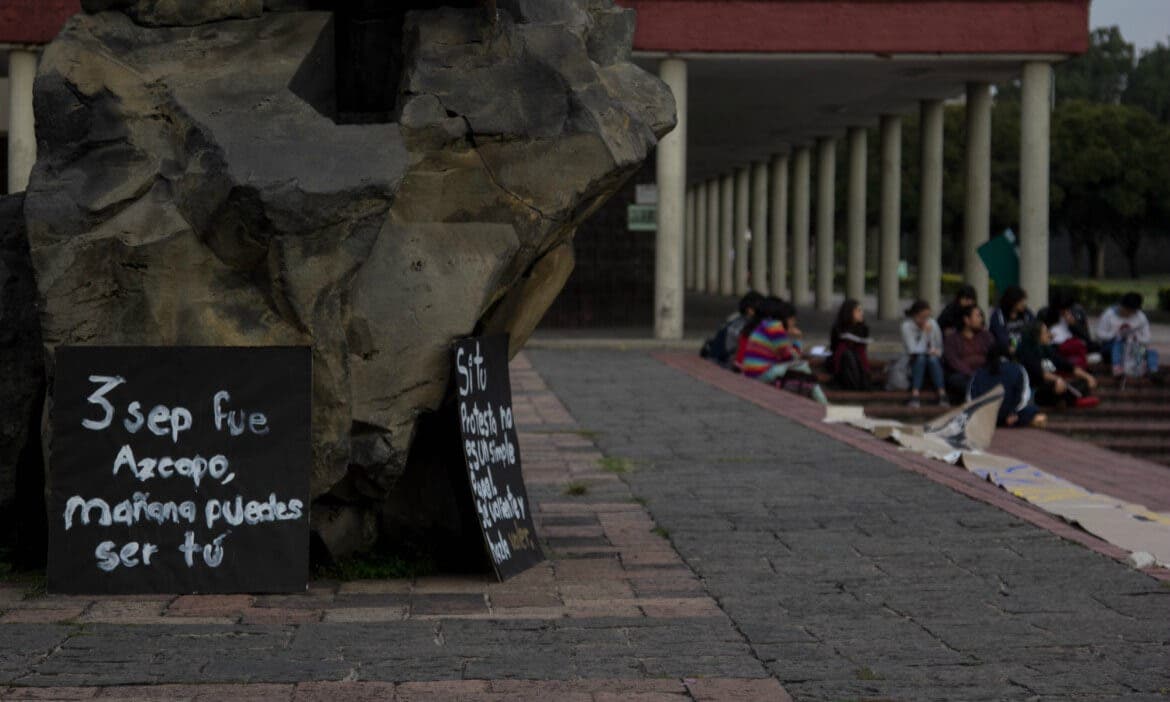 3 sep fue
Azcapo,
mañana puedes
ser tú
Si tu
Protesta no
es un simple
Papel.
Se valiente y
hazla valer.